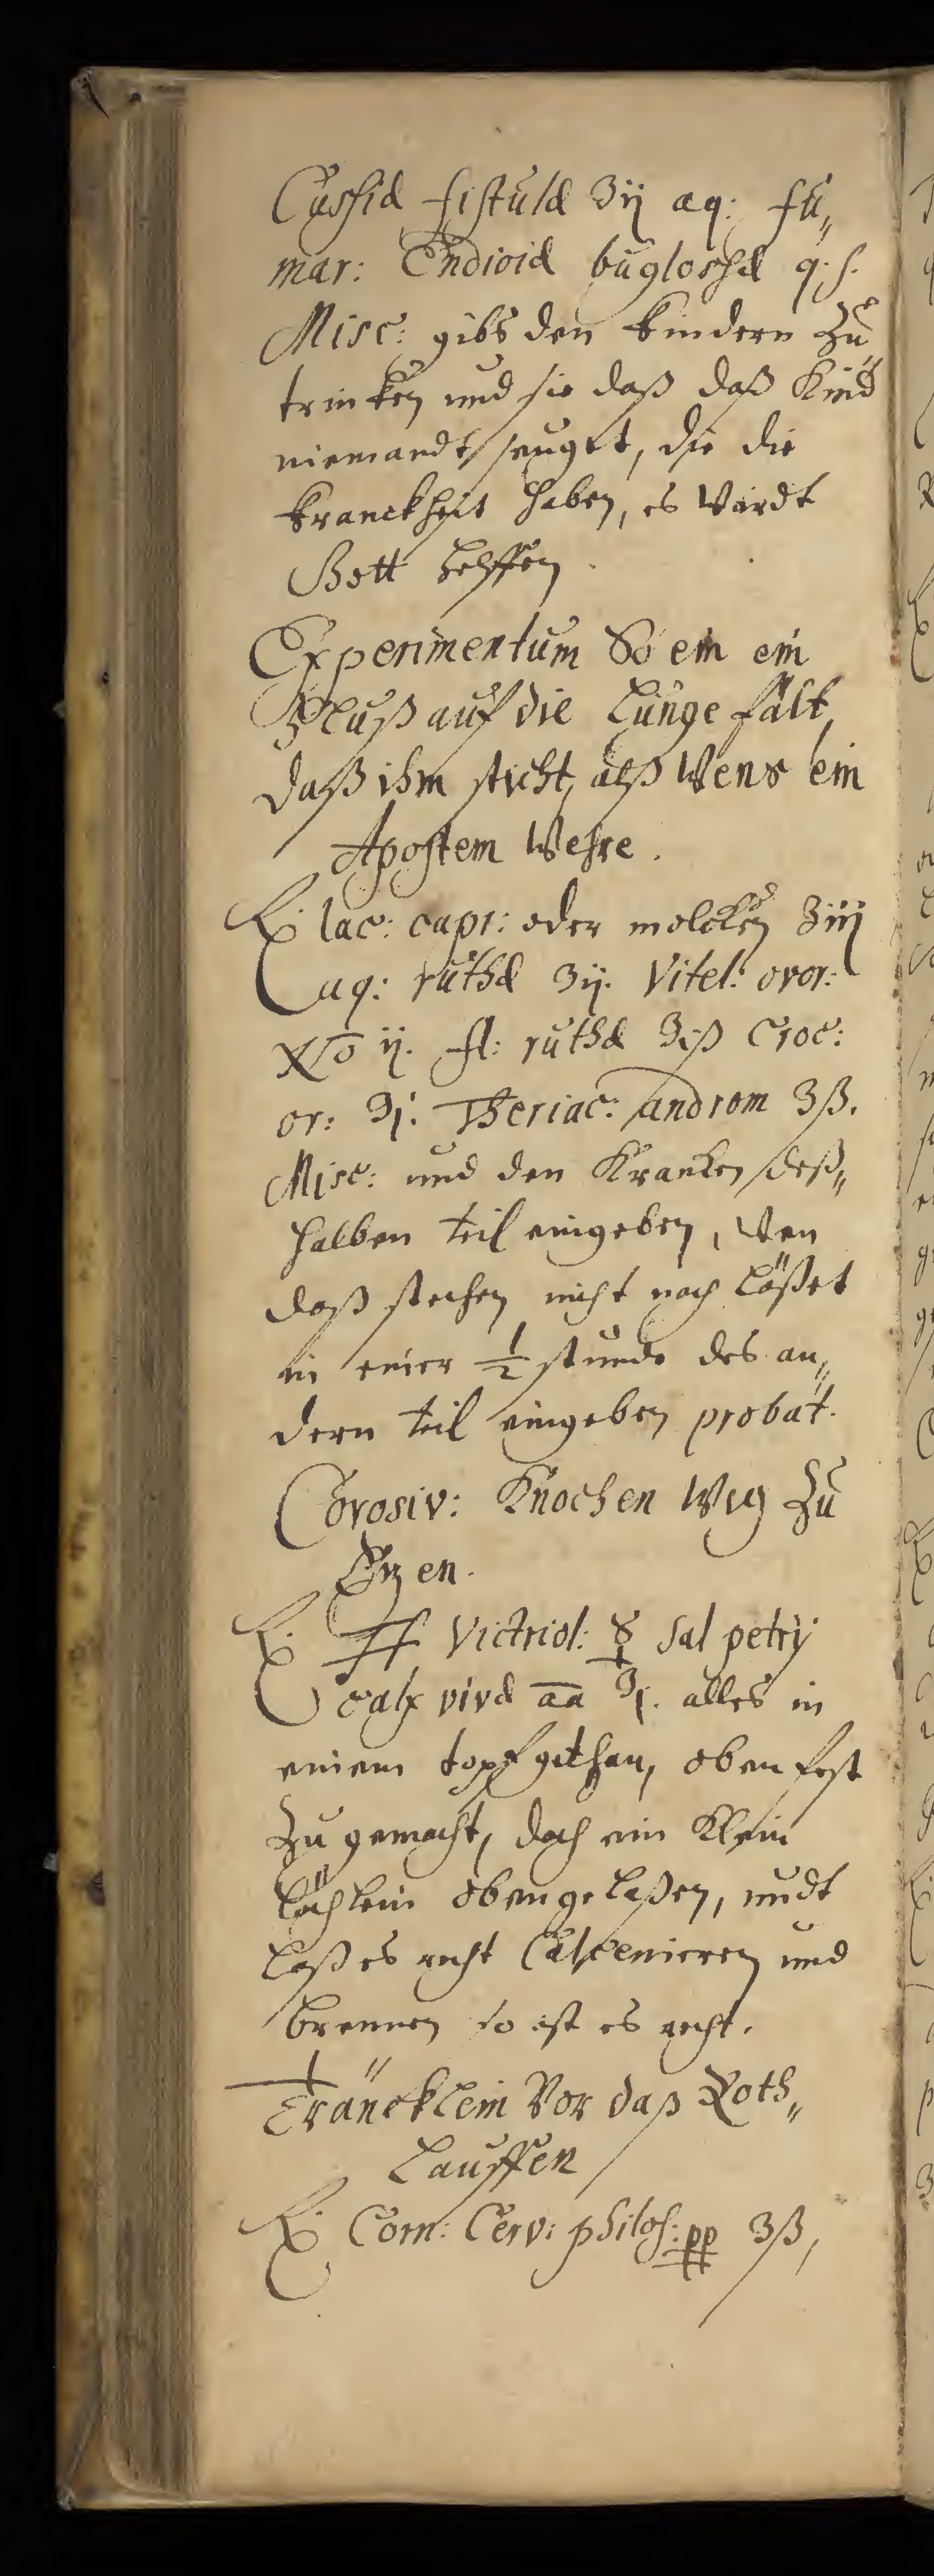 Cassiæ fistulæ ʒij aq: fu„
mar: Endiviæ buglossæ q. s.
Misc: gibs den kindern zu
trincken und sie daß daß Kind
niemandt seuget, die die
kranckheit haben, es wirdt
Gott helffen.
Experimentum So ein ein
Fluß auf die Lunge fält,
daß ihm sticht, alß Wens ein
Apostem Wehre.
℞ lac: capr: oder molcken ℥iij
aq: ruthæ ℥ij. Vitel: ovor:
No ij. fl: ruthæ ʒiß Croc:
or: ℈j. Theriac: androm ʒß.
Misc: und den Krancken deß„
halben teil eingeben, Wen
daß stechen nicht nach läßet
in einer ½ stunde des an„
dern teil eingeben probat.
Corosiv: Knochen Weg zu
Etzen.
℞ Victriol: sal petrij
calx vivæ aa ℥j. alles in
einem topf gethan, oben fest
zu gemacht, doch ein Klein
löchlein oben gelaßen, undt
laß es recht Calcenieren und
brennen so ist es recht.
Träncklein Vor daß Roth„
Lauffen
℞ Corn: Cerv: philos: pp ʒß,